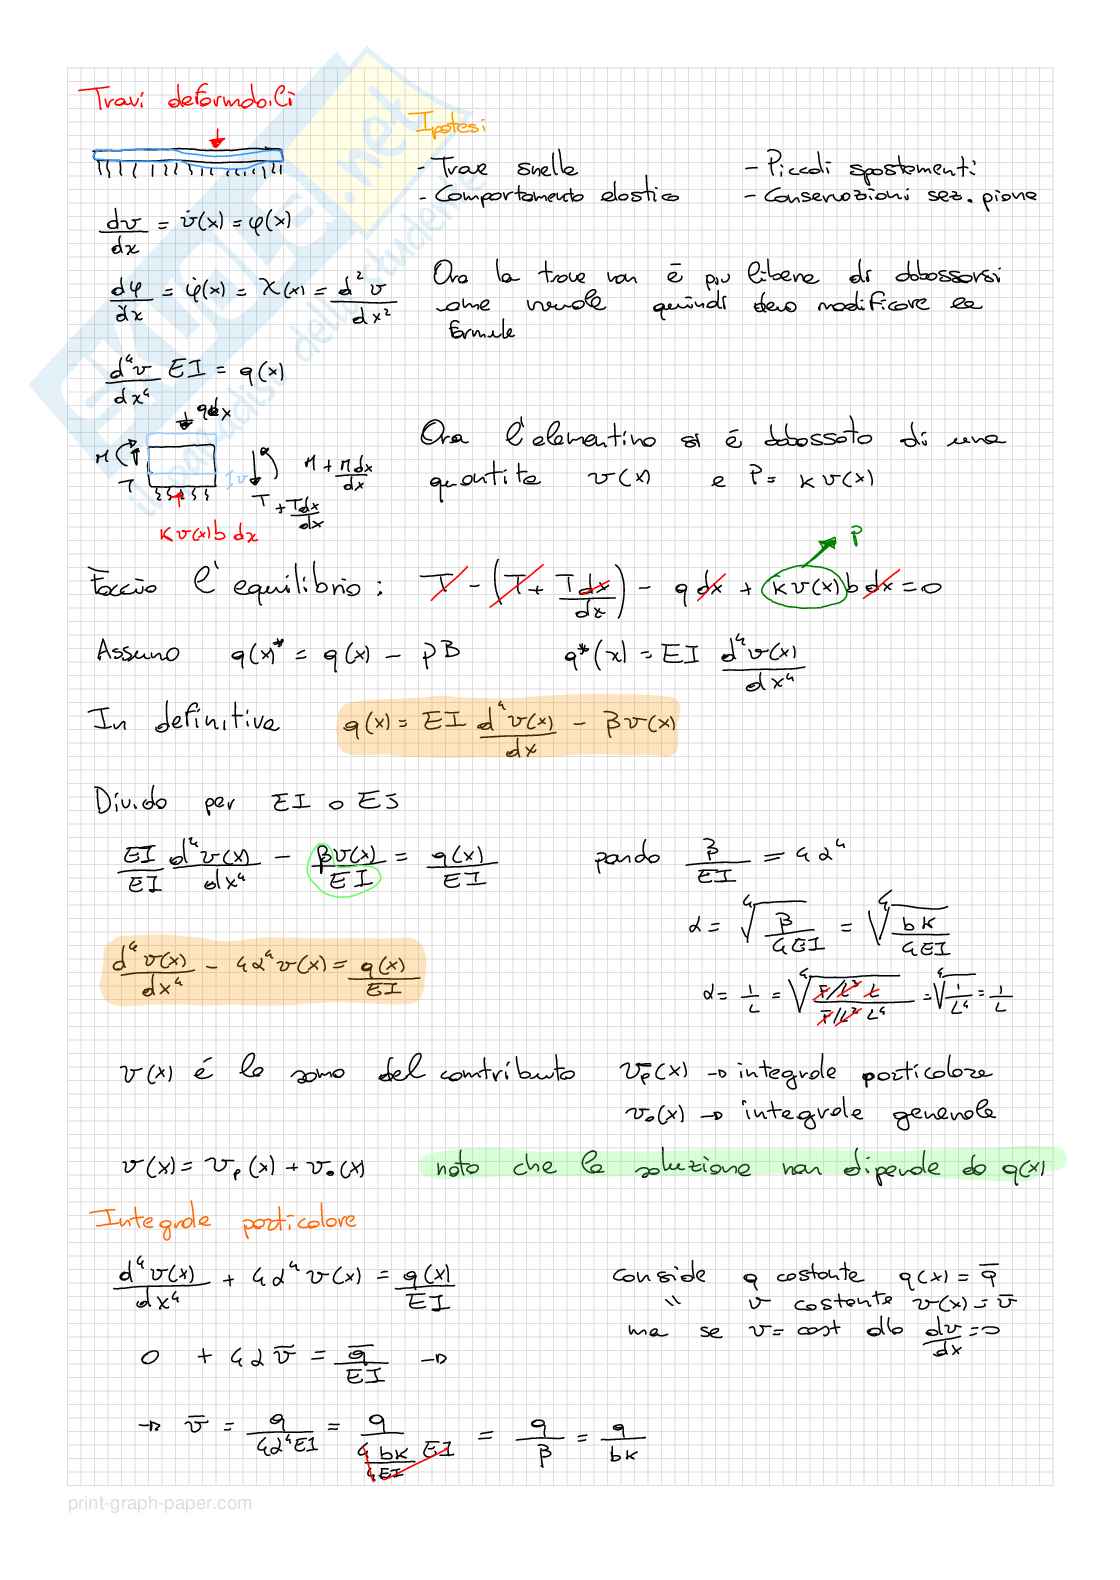 Travi deformabili
Ipotesi
- Trave snella
- Piccoli spostamenti
- Comportamento elastico
- Conservazioni sez. piane
dv/dx = v̇(x) = φ(x)
dφ/dx = φ̇(x) = χ(x) = d²v/dx²
Ora la trave non è più libera di abbassarsi
come vuole quindi devo modificare le
formule
d⁴v/dx⁴ EI = q(x)
q dx
M
T
M + M dx/dx
T + T dx/dx
K v(x) b dx
Ora l'elementino si è abbassato di una
quantità v(x) e P = K v(x)
P
Faccio l'equilibrio: T - (T + T dx/dx) - q dx + K v(x) b dx = 0
Assumo q(x)* = q(x) - pB q*(x) = EI d⁴v(x)/dx⁴
In definitiva q(x) = EI d⁴v(x)/dx - βv(x)
Divido per EI o EJ
EI/EI d⁴v(x)/dx⁴ - βv(x)/EI = q(x)/EI
pando β/EI = 4α⁴
α = ⁴√(β/4EI) = ⁴√(bK/4EI)
d⁴v(x)/dx⁴ - 4α⁴v(x) = q(x)/EI
α = 1/L = ⁴√(F/L³ L / F/L² L⁴) = ⁴√(1/L⁴) = 1/L
v(x) é la soma del contributo vp(x) → integrale particolare
v₀(x) → integrale generale
v(x) = vp(x) + v₀(x) noto che la soluzione non dipende da q(x)
Integrale particolare
d⁴v(x)/dx⁴ + 4α⁴v(x) = q(x)/EI
conside q costante q(x) = q̄
" v costante v(x) = v̄
ma se v = cost allo dv/dx = 0
0 + 4αv̄ = q̄/EI →
→ v̄ = q/4α⁴EI = q/(4 bK/4EI EI) = q/β = q/bK
print-graph-paper.com